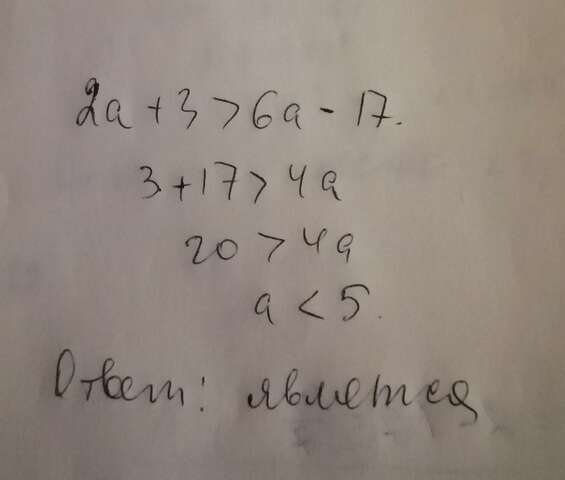 2a + 3 > 6a - 17.
3 + 17 > 4a
20 > 4a
a < 5.
Ответ: является